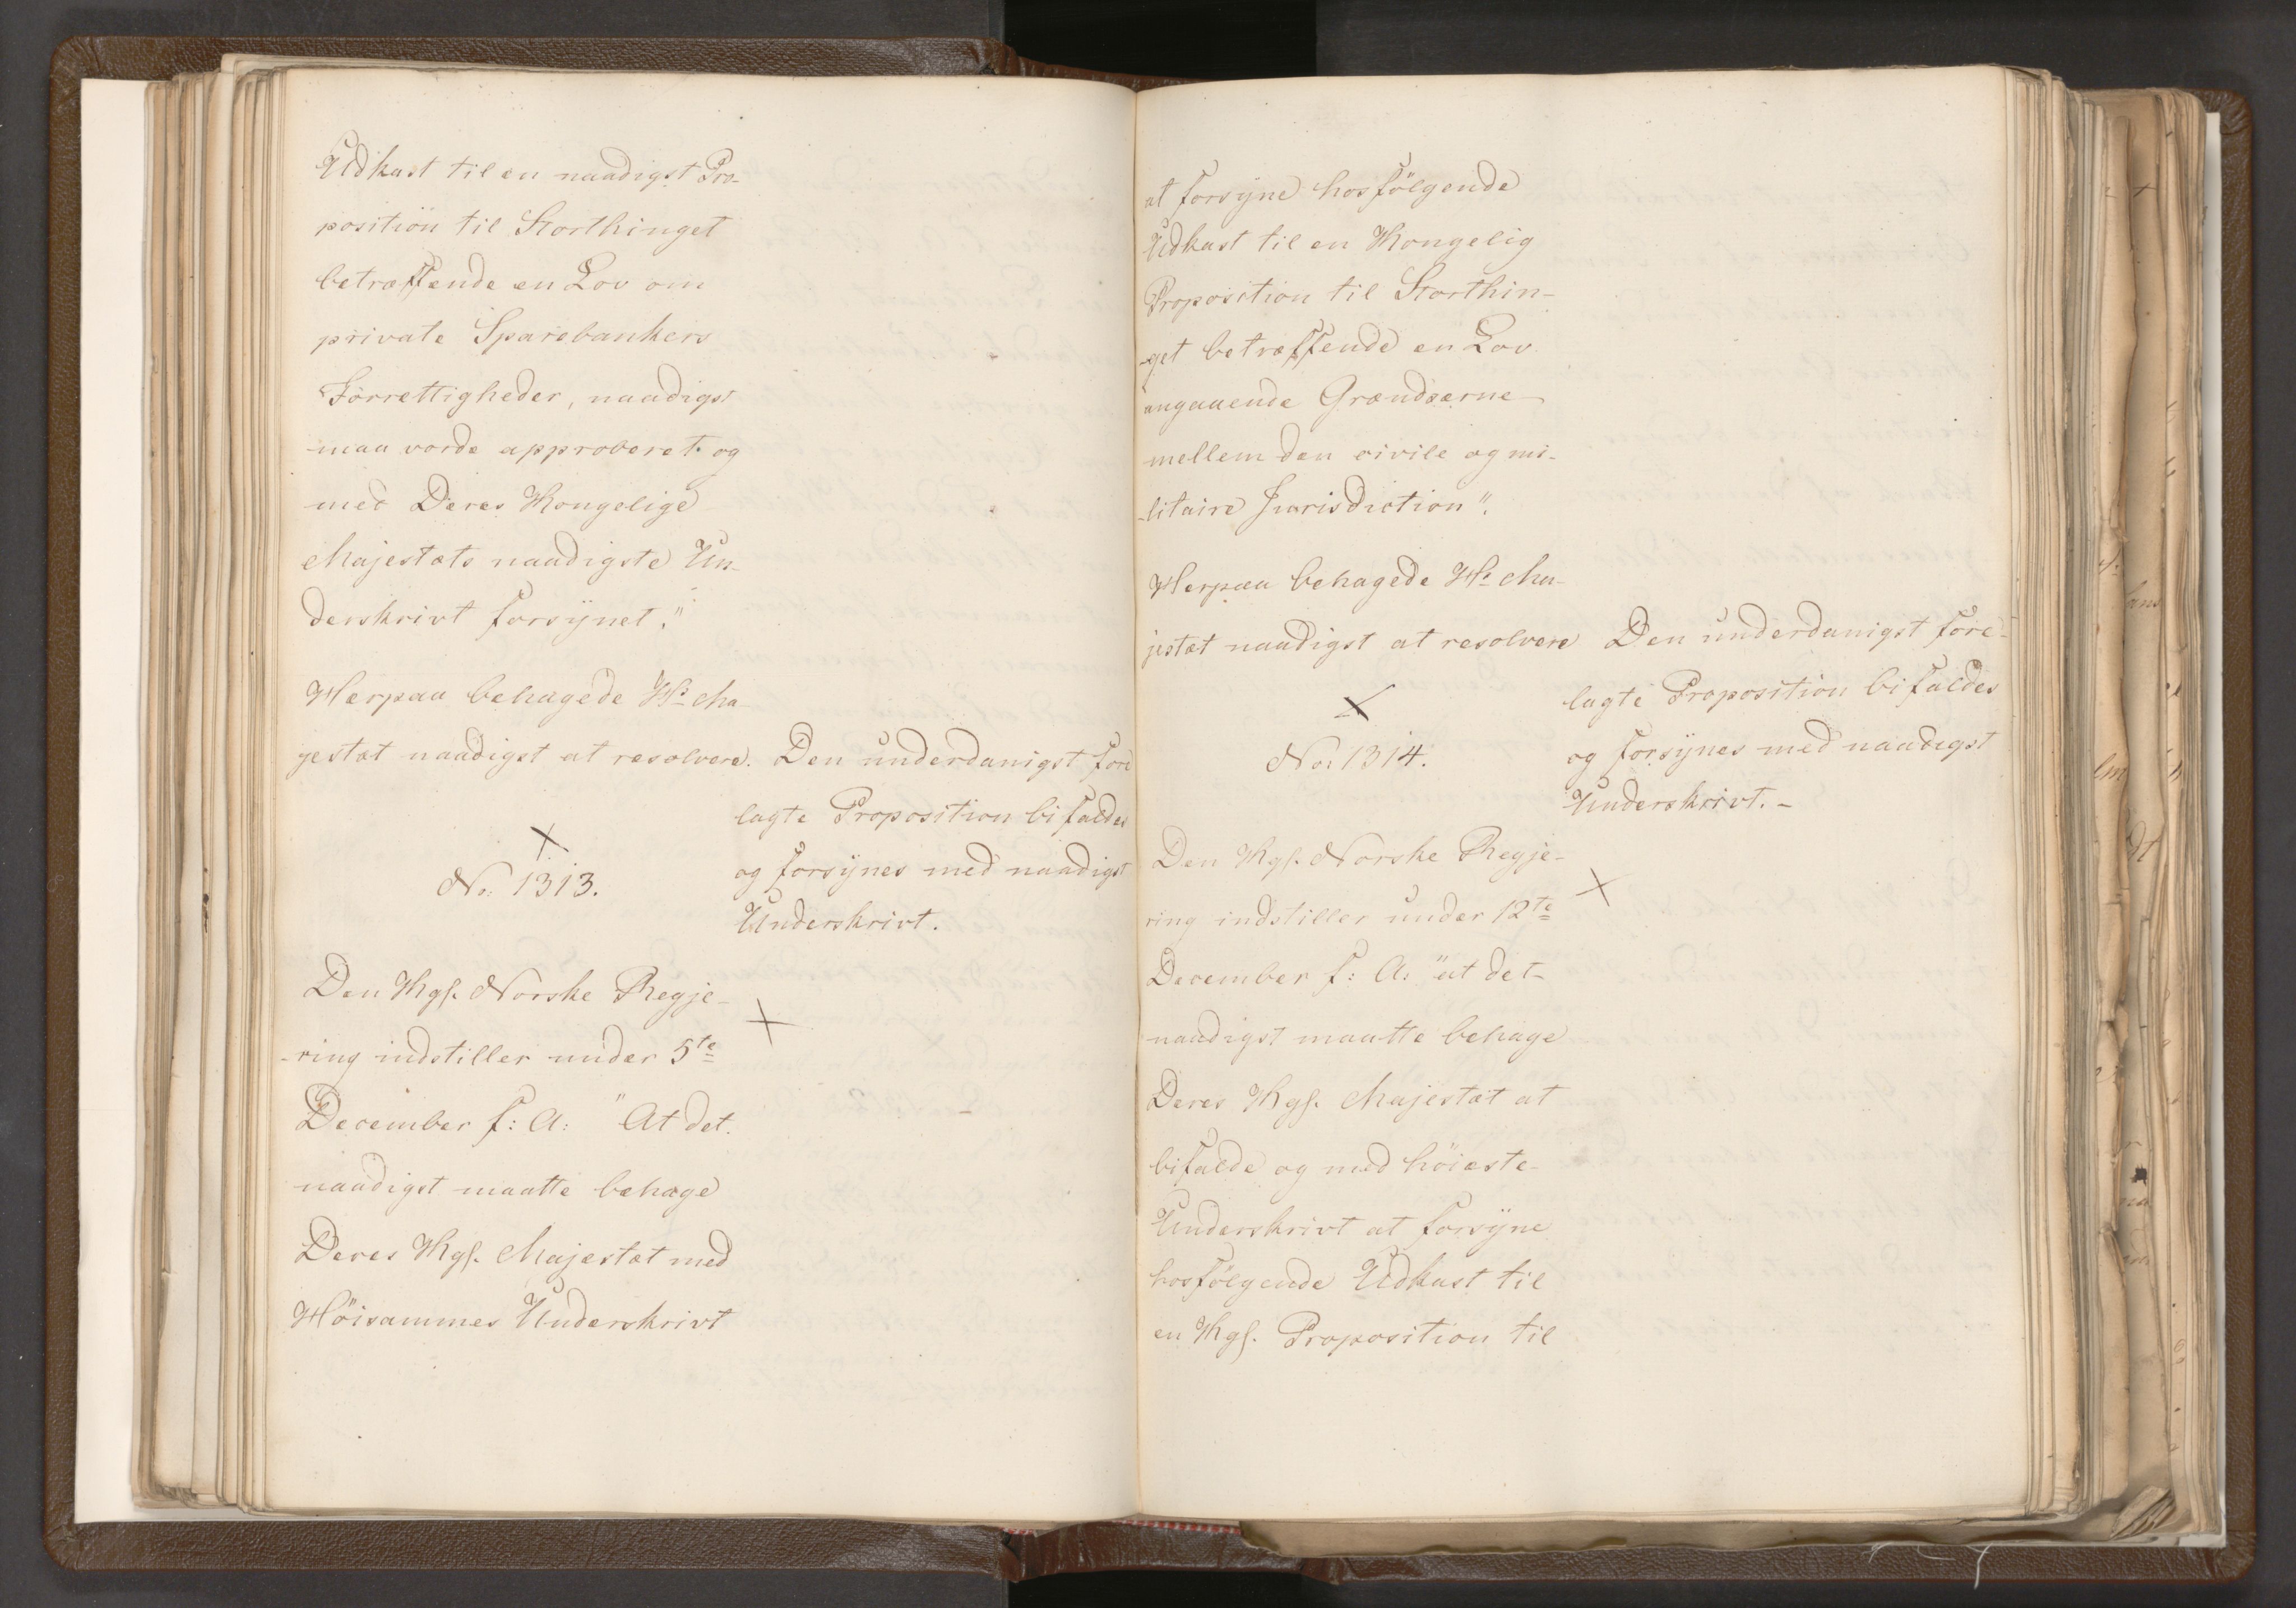 Udkast til en naadigst Pro-
position til Storthinget
betræffende en Lov om
private Sparebankers
Forrettigheder, naadigst
maa vorde approberet og
med Deres Kongelige
Majestæts naadigste Un-
derskrivt forsynet."
Herpaa behagede Hs Ma-
jestæt naadigst at resolvere.
Den underdanigst fore
lagte Proposition bifaldes
og forsynes med naadigst
Underskrivt.
No: 1313.
Den Kgl. Norske Regje-
-ring indstiller under 5te
December f: A: "At det
naadigst maatte behage
Deres Kgl. Majestæt med
Höisammes Underskrivt
at forsyne hosfölgende
Udkast til en Kongelig
Proposition til Storthin-
-get betræffende en Lov
angaaende Grændserne
mellem den civile og mi-
-litaire Jurisdiction".
Herpaa behagede Hs Ma-
jestæt naadigst at resolvere
Den underdanigst fore-
lagte Proposition bifaldes
og forsynes med naadigst
Underskrivt. -
No: 1314.
Den Kgl. Norske Regje-
ring indstiller under 12te
December f: A: "at det
naadigst maatte behage
Deres Kgl. Majestæt at
bifalde og med höieste
Underskrivt at forsyne
hosfölgende Udkast til
en Kgl. Proposition til